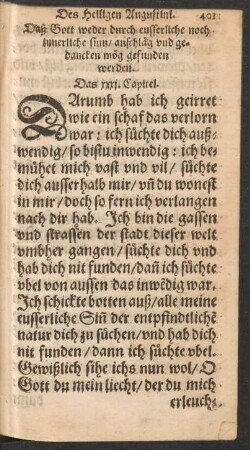 Des Heiligen Augustini. 401
Daß Gott weder durch eusserliche noch
innerliche sinn/ anschläg vnd ge-
dancken mög gefunden
werden.
Das xxxj. Capitel.
DArumb hab ich geirret
wie ein schaf das verlorn
war: ich süchte dich auß-
wendig/ so bistu inwendig: ich be-
mühet mich vast vnd vil/ süchte
dich ausserhalb mir/ vñ du wonest
in mir/ doch so fern ich verlangen
nach dir hab. Ich bin die gassen
vnd strassen der stadt dieser welt
vmbher gangen/ süchte dich vnd
hab dich nit funden/ dañ ich süchte
vbel von aussen das inwẽdig war.
Ich schickte botten auß/ alle meine
eusserliche Siñ der entpfindtlichẽ
natur dich zu süchen/ vnd hab dich
nit funden/ dann ich süchte vbel.
Gewißlich sihe ichs nun wol/ O
Gott du mein liecht/ der du mich
erleuch-